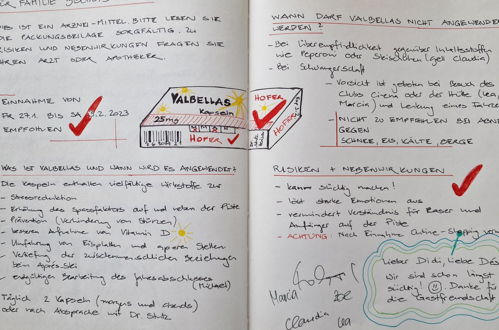 FÜR FAMILIE
DIES IST EIN ARZNEI-MITTEL. BITTE LESEN SIE
DIE PACKUNGSBEILAGE SORGFÄLTIG. ZU
RISIKEN UND NEBENWIRKUNGEN FRAGEN SIE
IHREN ARZT ODER APOTHEKER.
EINNAHME VON
FR 27.1. BIS SA 2. 2023
EMPFOHLEN
VALBELLAS
Kapseln
25mg
HOFER
HOFER
WAS IST VALBELLAS UND WANN WIRD ES ANGEWENDET?
Die Kapseln enthalten vielfältige Wirkstoffe zur
- Stressreduktion
- Erhöhung des Spassfaktors auf und neben der Piste
- Prävention (Verhinderung von Stürzen)
- besseren Aufnahme von Vitamin D
- Umfahrung von Eisplatten und aperen Stellen
- Vertiefung der zwischenmenschlichen Beziehungen
beim Après-Ski
- endgültigen Bearbeitung des Jahresabschlusses
(Michael)
Täglich 2 Kapseln (morgens und abends)
oder nach Absprache mit Dr. Stutz
WANN DARF VALBELLAS NICHT ANGEWENDET
WERDEN?
- Bei Überempfindlichkeit gegenüber Inhaltsstoffen
wie Peperoni oder Skischuhen (gell Claudia)
- Bei Schwangerschaft
- Vorsicht ist geboten bei Besuch des
Clubs Cinema oder der Hütte (Lea,
Marcia) und Lenkung eines
- NICHT ZU EMPFEHLEN BEI
GEGEN
SCHNEE, EIS, KÄLTE, BERGE
RISIKEN + NEBENWIRKUNGEN
- kann süchtig machen!
- löst starke Emotionen aus
- vermindert Verständnis für Raser und
Anfänger auf der Piste
- ACHTUNG: Nach Einnahme Online-Shopping
Lieber Didi, Liebe
Wir sind schon längst
süchtig! Danke für
die Gastfreundschaft
Marcia
Zoe
Claudia
Lea